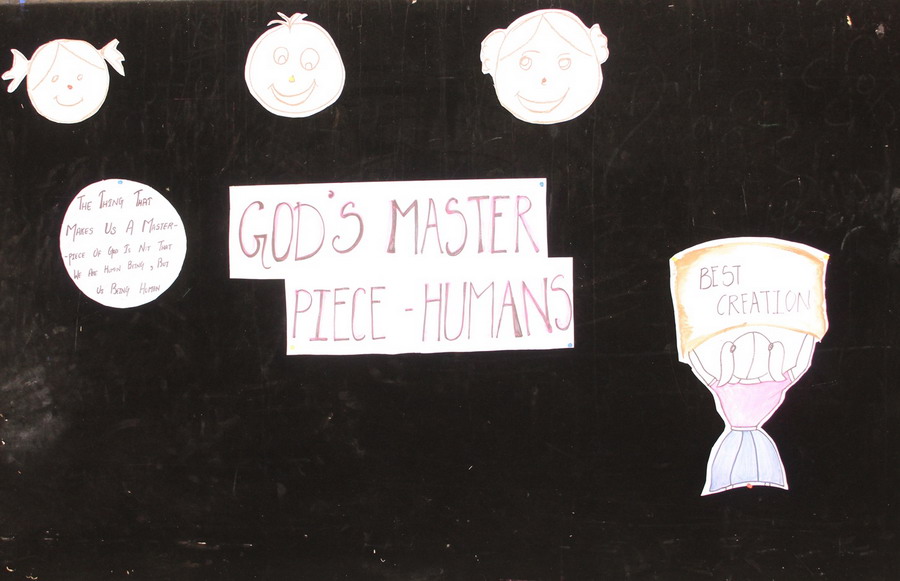 THE THING THAT
MAKES US A MASTER-
-PIECE OF GOD IS NOT THAT
WE ARE HUMAN BEING, BUT
US BEING HUMAN
GOD'S MASTER
PIECE - HUMANS
BEST
CREATION